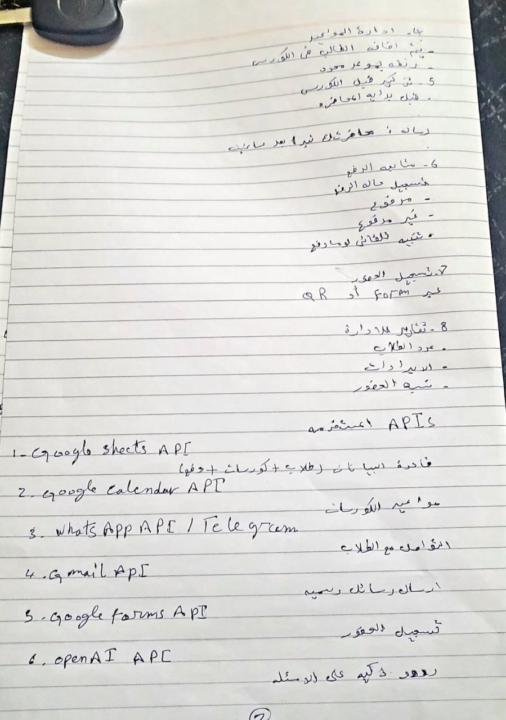 4- ادارة المواعيد
- يتم اضافة الطالب في الكورس
- ربطه بموعد محدد
5- تذكير قبل الكورس
- قبل بداية المحاضرة
رسالة : محاضرتك تبدأ بعد ساعتين
6- متابعة الدفع
تسجيل حالة الدفع
- مدفوع
- غير مدفوع
• تنبيه تلقائي لو ما دفع
7. تسجيل الحضور
عبر Form أو QR
8- تقارير للادارة
- عدد الطلاب
- الايرادات
- نسبة الحضور
APIs المستخدمه
1- Google Sheets API
قاعدة البيانات (طلاب + كورسات + دفع)
2. Google Calendar API
مواعيد الكورسات
3. WhatsApp API / Telegram
التواصل مع الطلاب
4. Gmail API
ارسال رسائل رسمية
5. Google Forms API
تسجيل الحضور
6. openAI API
ردود ذكيه على الاسئله
2